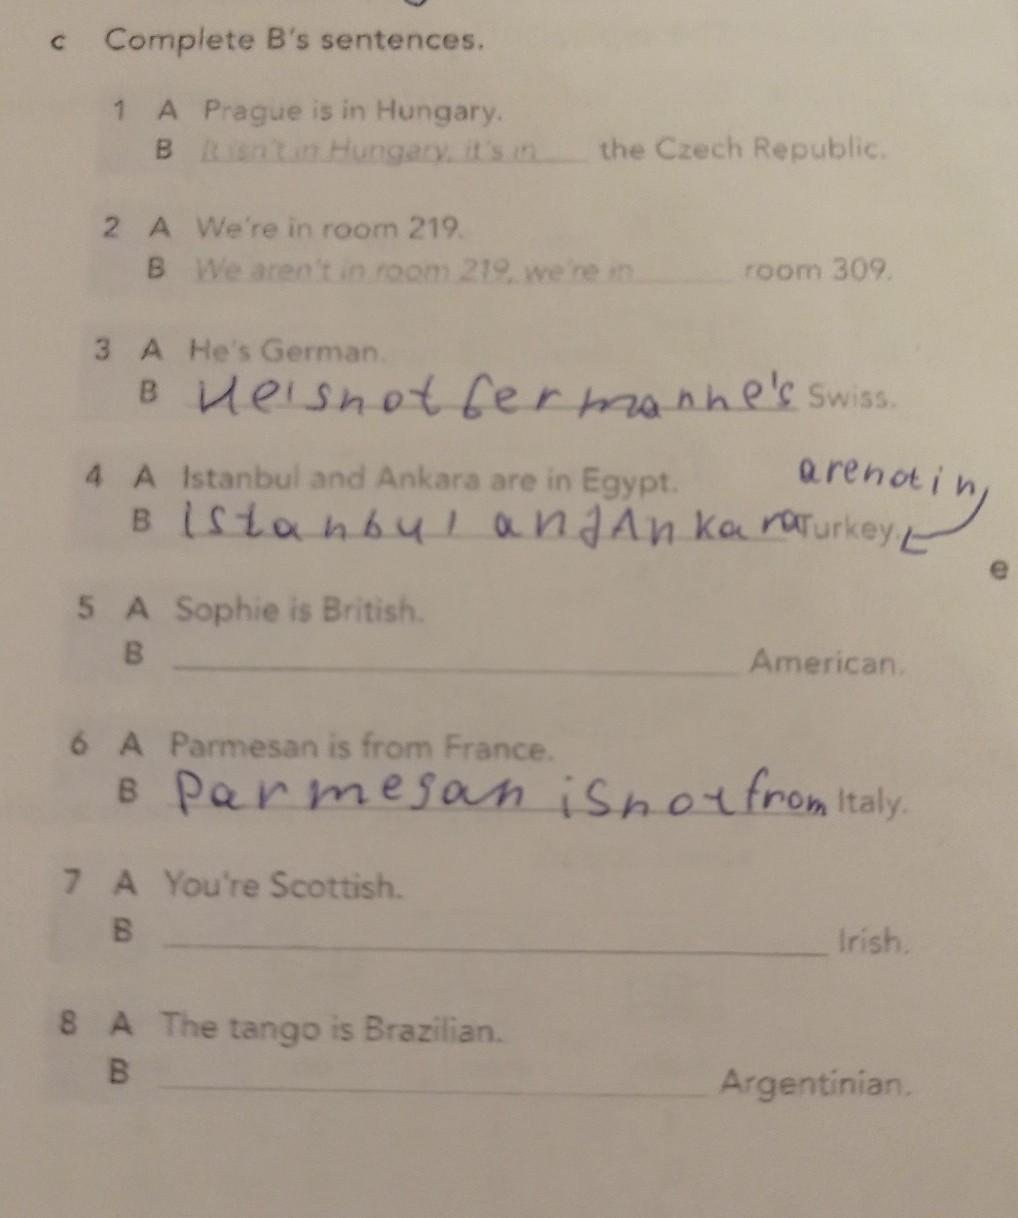 c Complete B's sentences.
1 A Prague is in Hungary.
B It isn't in Hungary, it's in the Czech Republic.
2 A We're in room 219.
B We aren't in room 219, we're in room 309.
3 A He's German.
B He isnot Germanhe's Swiss.
4 A Istanbul and Ankara are in Egypt.
arenotin
B istanbul andAnkara Turkey.
e
5 A Sophie is British.
B American.
6 A Parmesan is from France.
B Parmesan isnotfrom Italy.
7 A You're Scottish.
B Irish.
8 A The tango is Brazilian.
B Argentinian.